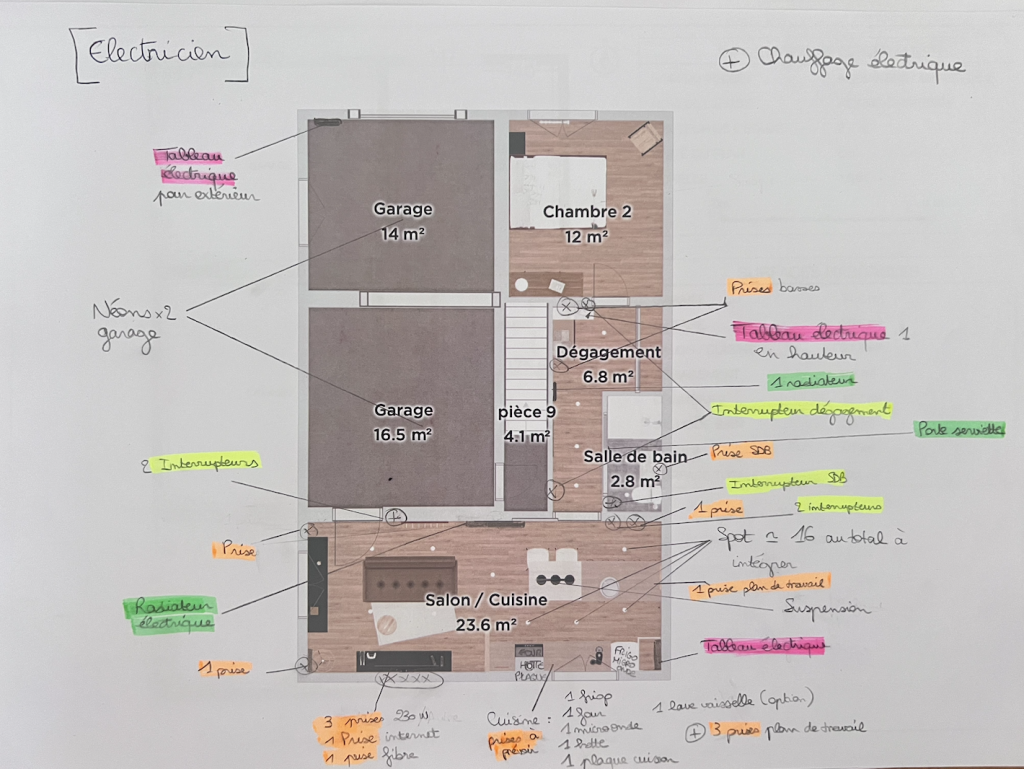 [Electricien]
⊕ Chauffage électrique
Tableau
électrique
pour extérieur
Garage
14 m²
Chambre 2
12 m²
Néons x2
garage
Prises basses
Tableau électrique 1
en hauteur
Dégagement
6.8 m²
1 radiateur
Garage
16.5 m²
pièce 9
4.1 m²
Interrupteur dégagement
Porte serviette
2 Interrupteurs
Salle de bain
2.8 m²
Prise SDB
Interrupteur SDB
1 prise
2 interrupteurs
Prise
Spot ≃ 16 au total à
intégrer
1 prise plan de travail
Radiateur
électrique
Salon / Cuisine
23.6 m²
Suspension
Tableau électrique
1 prise
FOUR
HOTTE
PLAQUE
FRIGO
MICRO
ONDE
3 prises 230 V
1 Prise internet
1 prise fibre
Cuisine :
prises à
prévoir
1 frigo
1 four
1 microonde
1 hotte
1 plaque cuisson
1 lave vaisselle (option)
⊕ 3 prises plan de travail